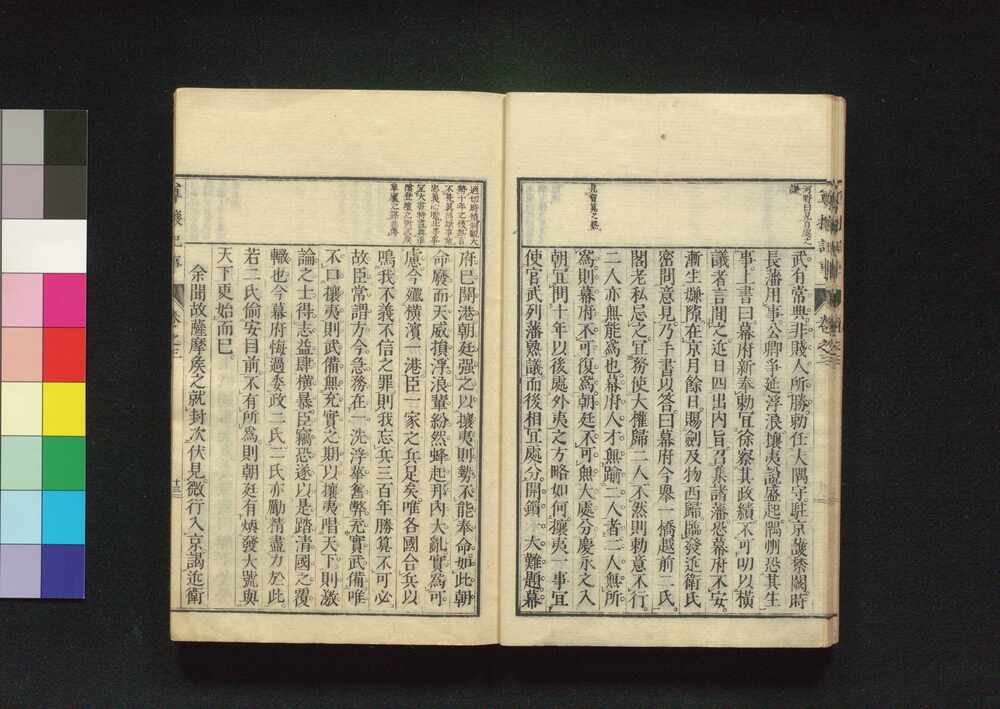 武有常典非賤人所勝勅任大隅守駐京護禁闕時
長藩用事公卿爭延浮浪攘夷說盛起隅州恐其生
事上書曰幕府新奉勅宜徐察其政績不可叨以橫
議者言間之近日四出內旨召集諸藩恐幕府不安
漸生嫌隙在京月餘日賜劍及物西歸臨發近衛氏
密問意見乃手書以答曰幕府今舉一橋越前二氏
閣老私忌之宜務使大權歸二人不然則勅意不行
二人亦無能爲也幕府人才無踰二人者二人無所
爲則幕府不可復爲朝廷不可無大處分慶永之入
朝宜問十年以後處外夷之方略如何攘夷一事宜
使官武列藩熟議而後相宜處分開鎖一大難題幕
見曾寬之
府已開港朝廷强之以攘夷則勢不能奉命如此朝
命廢而天威損浮浪輩紛然蜂起邦內大亂實爲可
慮今殲橫濱一港臣一家之兵足矣唯各國合兵以
鳴我不義不信之罪則我忘兵三百年勝算不可必
故臣常謂方今急務在一洗浮華舊弊充實武備唯
不口攘夷則武備無充實之期以攘夷唱天下則激
論之士得志益肆橫暴臣竊恐遂以是踏清國之覆
轍也今幕府悔過委政二氏二氏亦勵精盡力於此
若二氏偷安目前不有所爲則朝廷有煥發大號與
天下更始而已
余聞故薩摩侯之就封次伏見微行入京謁近衛